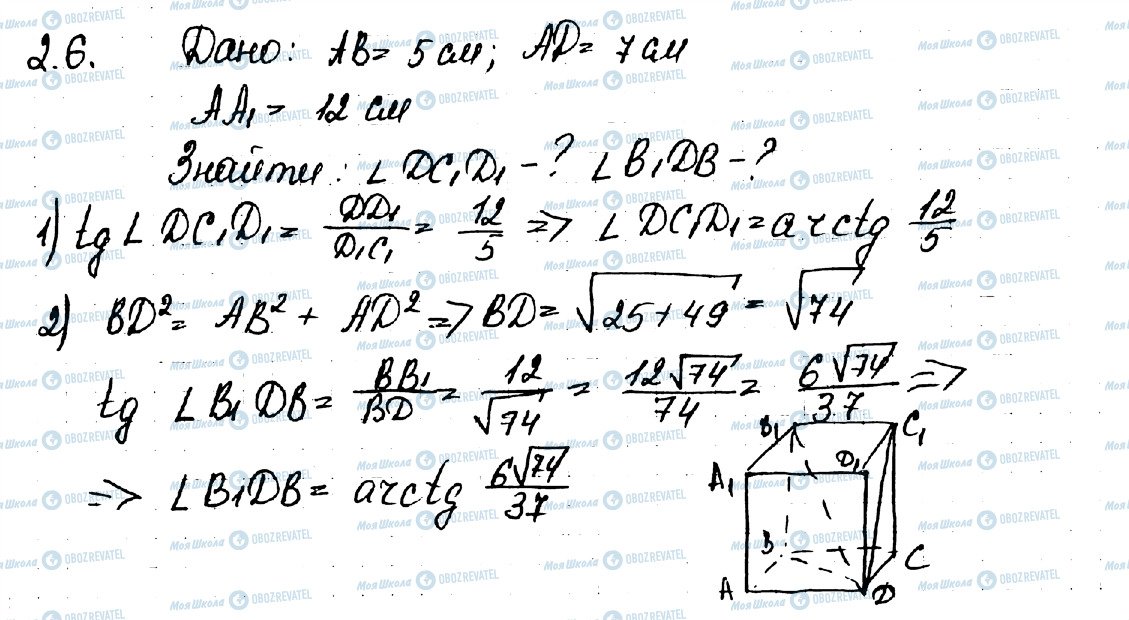 2.6. Дано: AB = 5 см; AD = 7 см
AA₁ = 12 см
Знайти: ∠DC₁D₁ - ? ∠B₁DB - ?
1) tg∠DC₁D₁ = DD₁/D₁C₁ = 12/5 => ∠DC₁D₁ = arctg 12/5
2) BD² = AB² + AD² => BD = √(25+49) = √74
tg ∠B₁DB = BB₁/BD = 12/√74 = 12√74/74 = 6√74/37 =>
=> ∠B₁DB = arctg 6√74/37
B₁ C₁
A₁ D₁
B C
A D
МояШкола OBOZREVATEL